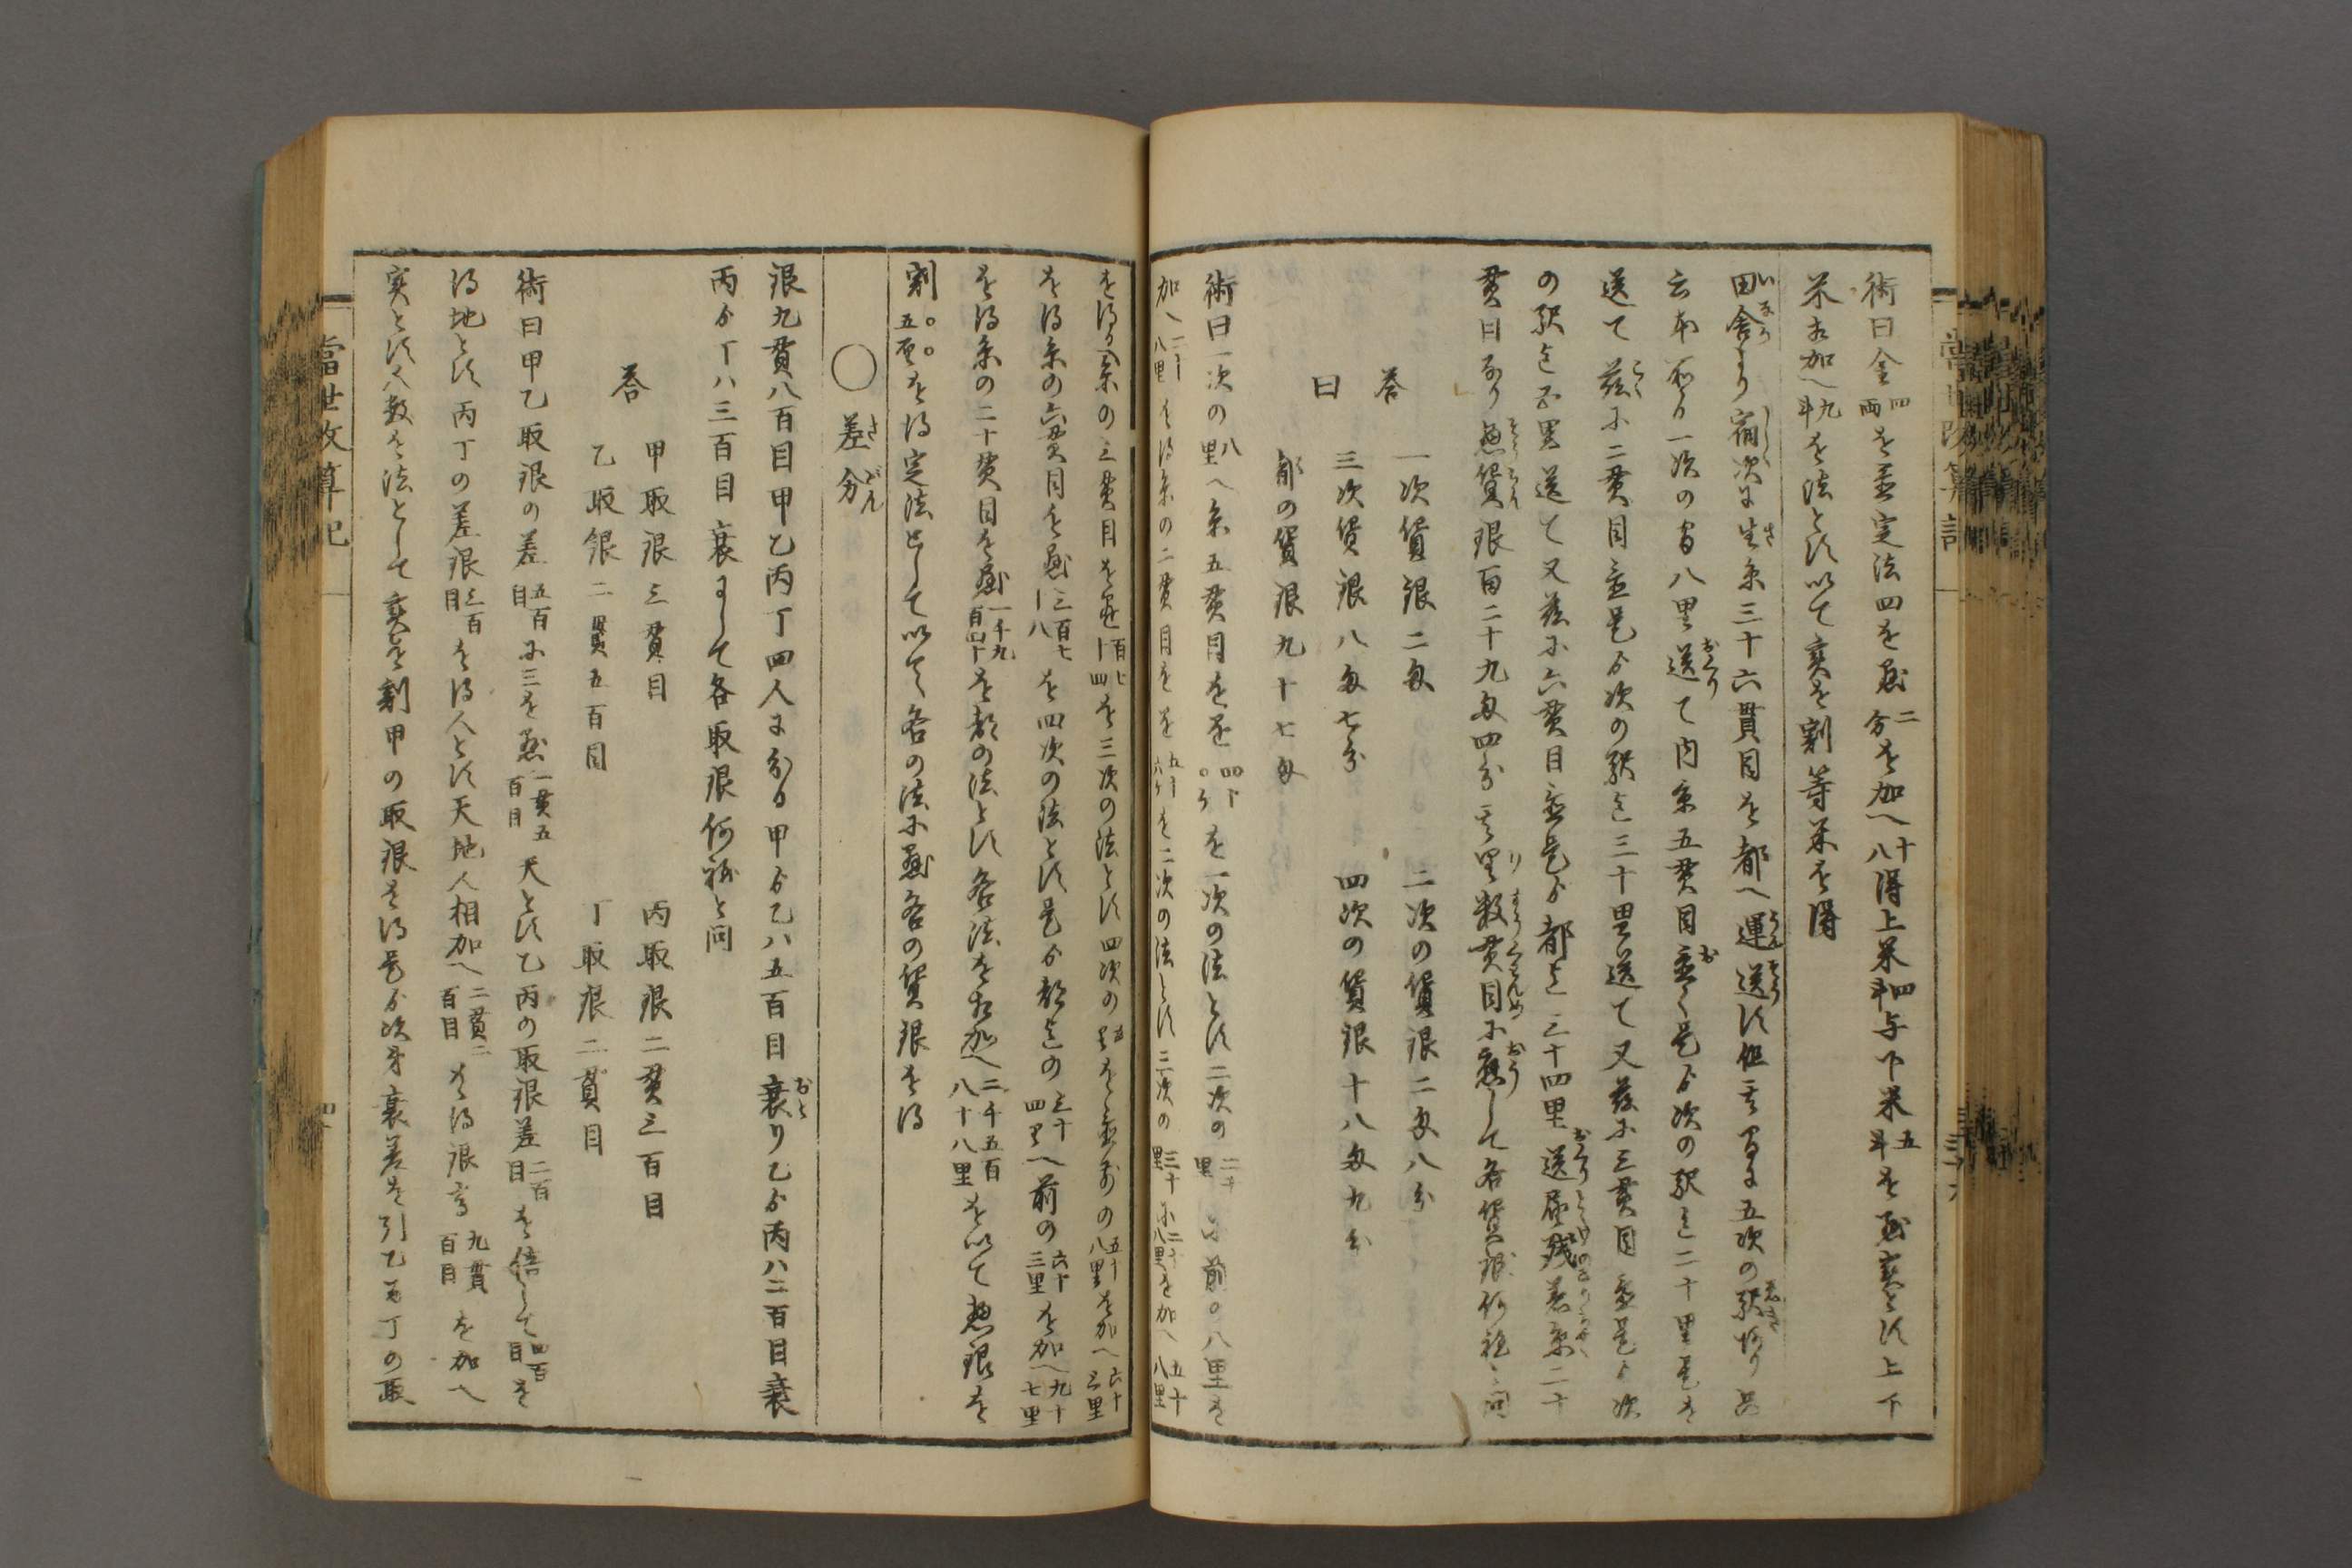 術曰金四両を置定法四を乗二分を加へ十八得上米四斗与下米五斗を乗実とス上下
米相加へ九斗を法とス以て実を割等米を得
田舎より宿次に生糸三十六貫目を都へ運送ス但其間に五次の駅有り
云本所より一次の間八里送て内糸五貫目置く是ゟ次の駅迄二十里是を
送て茲に二貫目置是ゟ次の駅迄三十里送て又茲に三貫目置是ゟ次
の駅迄五里送て又茲に六貫目置是ゟ都迄三十四里送届残着糸二十
貫目なり惣賃銀百二十九匁四分其里数貫目に応して各賃銀何程と問
答曰
一次賃銀二匁
二次の賃銀二匁八分
三次賃銀八匁七分
四次の賃銀十八匁九分
都の賃銀九十七匁
術曰一次の八里へ糸五貫目を乗四十〇ケを一次の法とス二次の二十里に前の八里を
加へ二十八里を得糸の二貫目を乗五十六ケを二次の法とス三次の三十里に二十八里を加へ五十八里
を得糸の三貫目を乗百七十四を三次の法とス四次の五里を置前の五十八里を加へ六十三里
を得糸の六貫目を乗三百七十八を四次の法とス是ゟ都迄の三十四里へ前の六十三里を加へ九十七里
を得糸の二十貫目を乗一千九百四十を都の法とス各法を相加へ二千五百八十八里を以て惣銀を
割〇〇五を得定法として以て各の法に乗各の賃銀を得
〇差分
銀九貫八百目甲乙丙丁四人に分る甲ゟ乙ハ五百目衰り乙ゟ丙ハ二百目衰
丙ゟ丁ハ三百目衰にして各取銀何程と問
答
甲取銀三貫目
乙取銀二貫五百目
丙取銀二貫三百目
丁取銀二貫目
術曰甲乙取銀の差五百目に三を乗一貫五百目天とス乙丙の取銀差二百目を倍して四百目を
得地とス丙丁の差銀三百目を得人とス天地人相加へ二貫二百目を得銀高九貫八百目を加へ
実とス人数を法として実を割甲の取銀を得是ゟ次第衰差を引乙丙丁の取
當世改算記